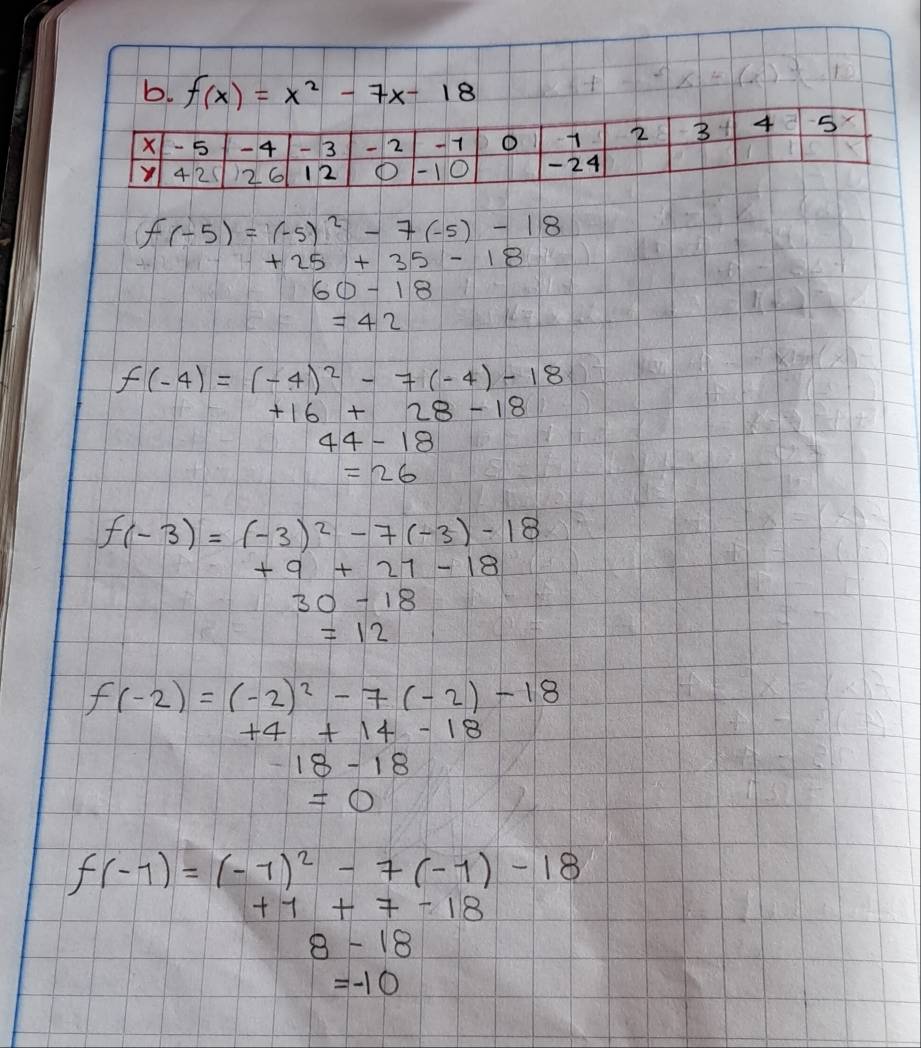 b. f(x) = x² - 7x - 18
x -5 -4 -3 -2 -1 0 1 2 3 4 5
y 42 26 12 0 -10 -24
f(-5) = (-5)² - 7(-5) - 18
+25 + 35 - 18
60 - 18
= 42
f(-4) = (-4)² - 7(-4) - 18
+16 + 28 - 18
44 - 18
= 26
f(-3) = (-3)² - 7(-3) - 18
+9 + 21 - 18
30 - 18
= 12
f(-2) = (-2)² - 7(-2) - 18
+4 + 14 - 18
18 - 18
= 0
f(-1) = (-1)² - 7(-1) - 18
+1 + 7 - 18
8 - 18
= -10